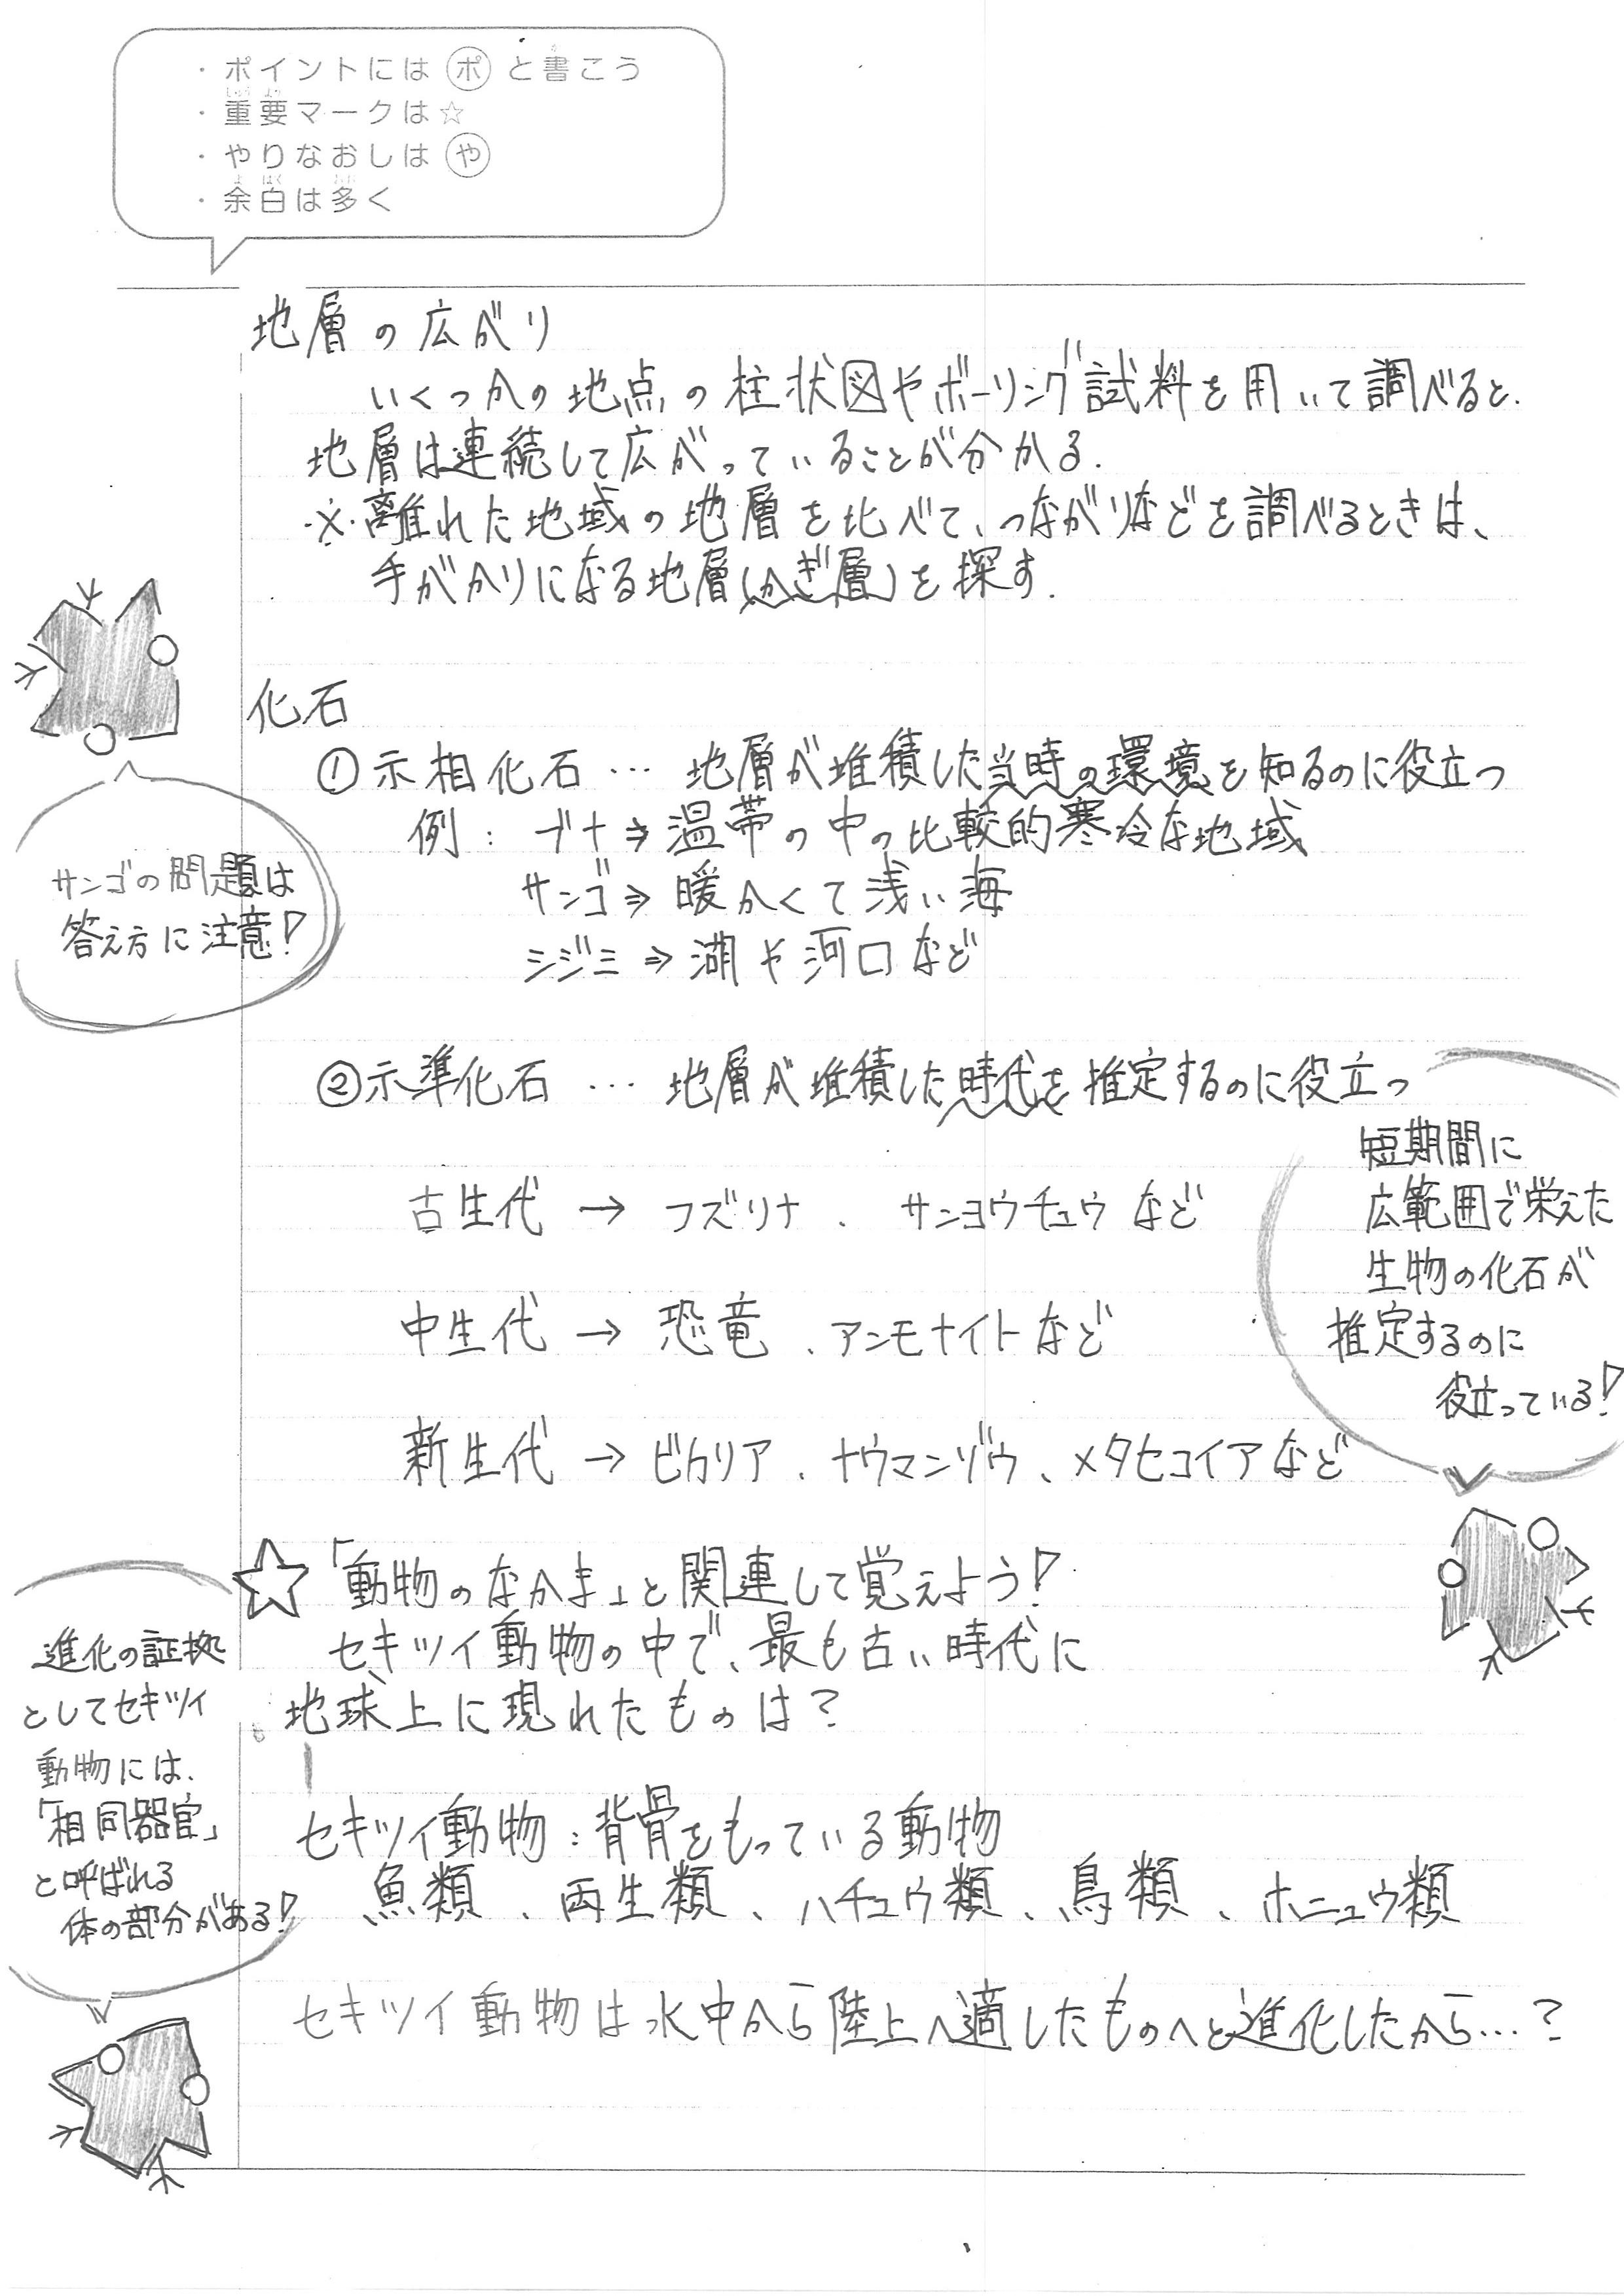 ・ポイントには ポ と書こう
・重要マークは☆
・やりなおしは や
・余白は多く
地層の広がり
いくつかの地点の柱状図やボーリング試料を用いて調べると、
地層は連続して広がっていることが分かる.
※離れた地域の地層を比べて、つながりなどを調べるときは、
手がかりになる地層(かぎ層)を探す.
化石
①示相化石 … 地層が堆積した当時の環境を知るのに役立つ
例: ブナ⇒温帯の中の比較的寒冷な地域
サンゴ⇒暖かくて浅い海
シジミ⇒湖や河口など
サンゴの問題は
答え方に注意!
②示準化石 … 地層が堆積した時代を推定するのに役立つ
古生代 → フズリナ、サンヨウチュウなど
中生代 → 恐竜、アンモナイトなど
新生代 → ビカリア、ナウマンゾウ、メタセコイアなど
短期間に
広範囲で栄えた
生物の化石が
推定するのに
役立っている!
☆「動物のなかま」と関連して覚えよう!
セキツイ動物の中で、最も古い時代に
地球上に現れたものは?
セキツイ動物:背骨をもっている動物
魚類、両生類、ハチュウ類、鳥類、ホニュウ類
セキツイ動物は水中から陸上へ適したものへと進化したから…?
進化の証拠
としてセキツイ
動物には、
「相同器官」
と呼ばれる
体の部分がある!